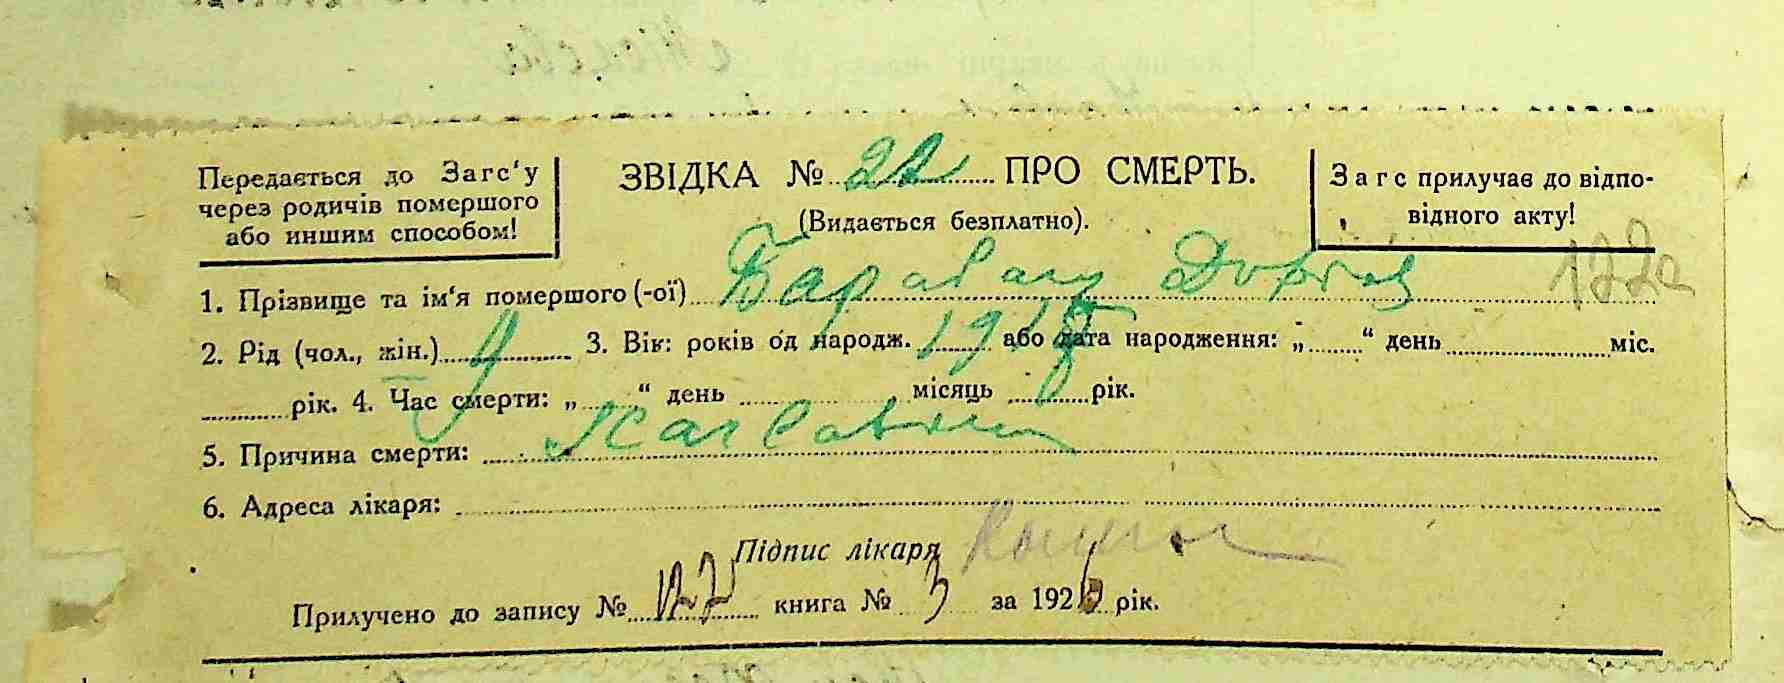 Передається до Загс‘у
через родичів помершого
або иншим способом!
ЗВІДКА № 22 ПРО СМЕРТЬ.
(Видається безплатно).
Загс прилучає до відпо-
відного акту!
1. Прізвище та ім'я помершого (-ої) Барабаш
2. Рід (чол., жін.) 3. Вік: років од народж. або дата народження: „ “ день міс.
рік. 4. Час смерти: „ “ день місяць рік.
5. Причина смерти:
6. Адреса лікаря:
Підпис лікаря
Прилучено до запису № 122 книга № 3 за 1926 рік.